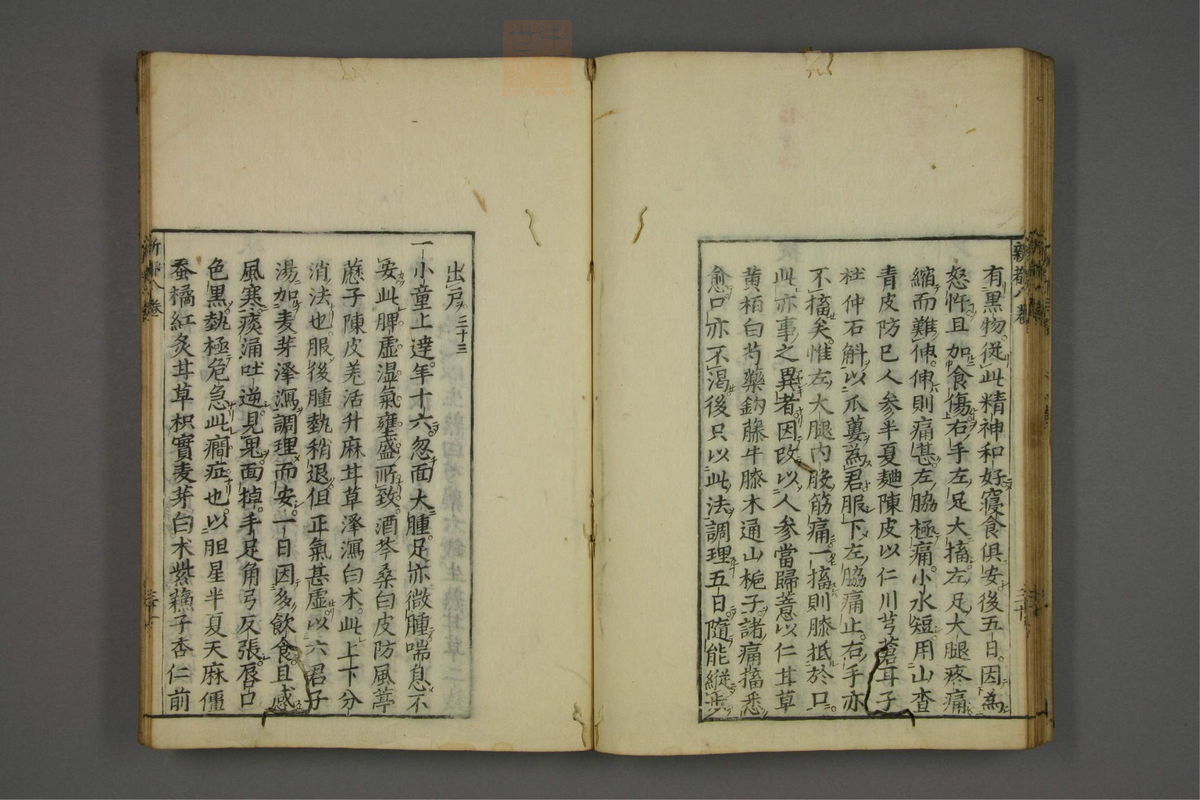 有黑物從此精神和好寢食俱安後五日因為
怒忤且加食傷右手左足大搐左足大腿疼痛
縮而難伸伸則痛甚左脇極痛小水短用山查
青皮防已人參半夏麯陳皮以仁川芎蒼耳子
杜仲石斛以瓜蔞為君服下左脇痛止右手亦
不搐矣惟左大腿內股筋痛一搐則膝抵於口
此亦事之異者因改以人參當歸薏以仁甘草
黄栢白芍藥鈎藤牛膝木通山梔子諸痛搐悉
愈口亦不渴後只以此法調理五日隨能縱步
出戸 二十三
一小童上達年十六忽面大腫足亦微腫喘息不
安此脾虛湿氣壅盛所致酒芩桑白皮防風葶
藶子陳皮羌活升麻甘草澤瀉白术此上下分
消法也服後腫熱稍退但正氣甚虛以六君子
湯加麦芽澤瀉調理而安一日因多飲食且感
風寒痰涌吐逆見鬼面掉手足角弓反張唇口
色黑熱極危急此癎症也以胆星半夏天麻僵
蚕橘紅炙甘草枳實麦芽白术紫蘓子杏仁前